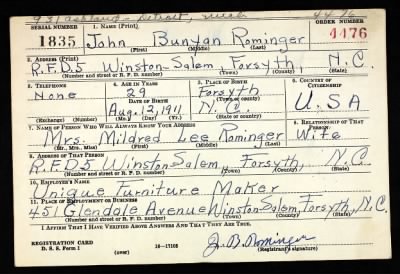 931 Ashland - Detroit, Mich
SERIAL NUMBER 1. NAME (Print) ORDER NUMBER
1835 John Bunyan Rominger 4476
(First) (Middle) (Last)
2. ADDRESS (Print)
R.F.D.5 Winston-Salem Forsyth N.C.
(Number and street or R. F. D. number) (Town) (County) (State)
3. TELEPHONE 4. AGE IN YEARS 5. PLACE OF BIRTH 6. COUNTRY OF CITIZENSHIP
None 29 Forsyth
DATE OF BIRTH (Town or county)
Aug. 12, 1911 N.C. U.S.A
(Exchange) (Number) (Mo.) (Day) (Yr.) (State or country)
7. NAME OF PERSON WHO WILL ALWAYS KNOW YOUR ADDRESS 8. RELATIONSHIP OF THAT PERSON
Mrs. Mildred Lee Rominger Wife
(Mr., Mrs., Miss) (First) (Middle) (Last)
9. ADDRESS OF THAT PERSON
R.F.D.5 Winston-Salem, Forsyth, N.C.
(Number and street or R. F. D. number) (Town) (County) (State)
10. EMPLOYER'S NAME
Unique Furniture Maker
11. PLACE OF EMPLOYMENT OR BUSINESS
451 Glendale Avenue Winston-Salem, Forsyth, N.C.
(Number and street or R. F. D. number) (Town) (County) (State)
I AFFIRM THAT I HAVE VERIFIED ABOVE ANSWERS AND THAT THEY ARE TRUE.
REGISTRATION CARD
D. S. S. Form 1 (over) 16—17105 J. B. Rominger